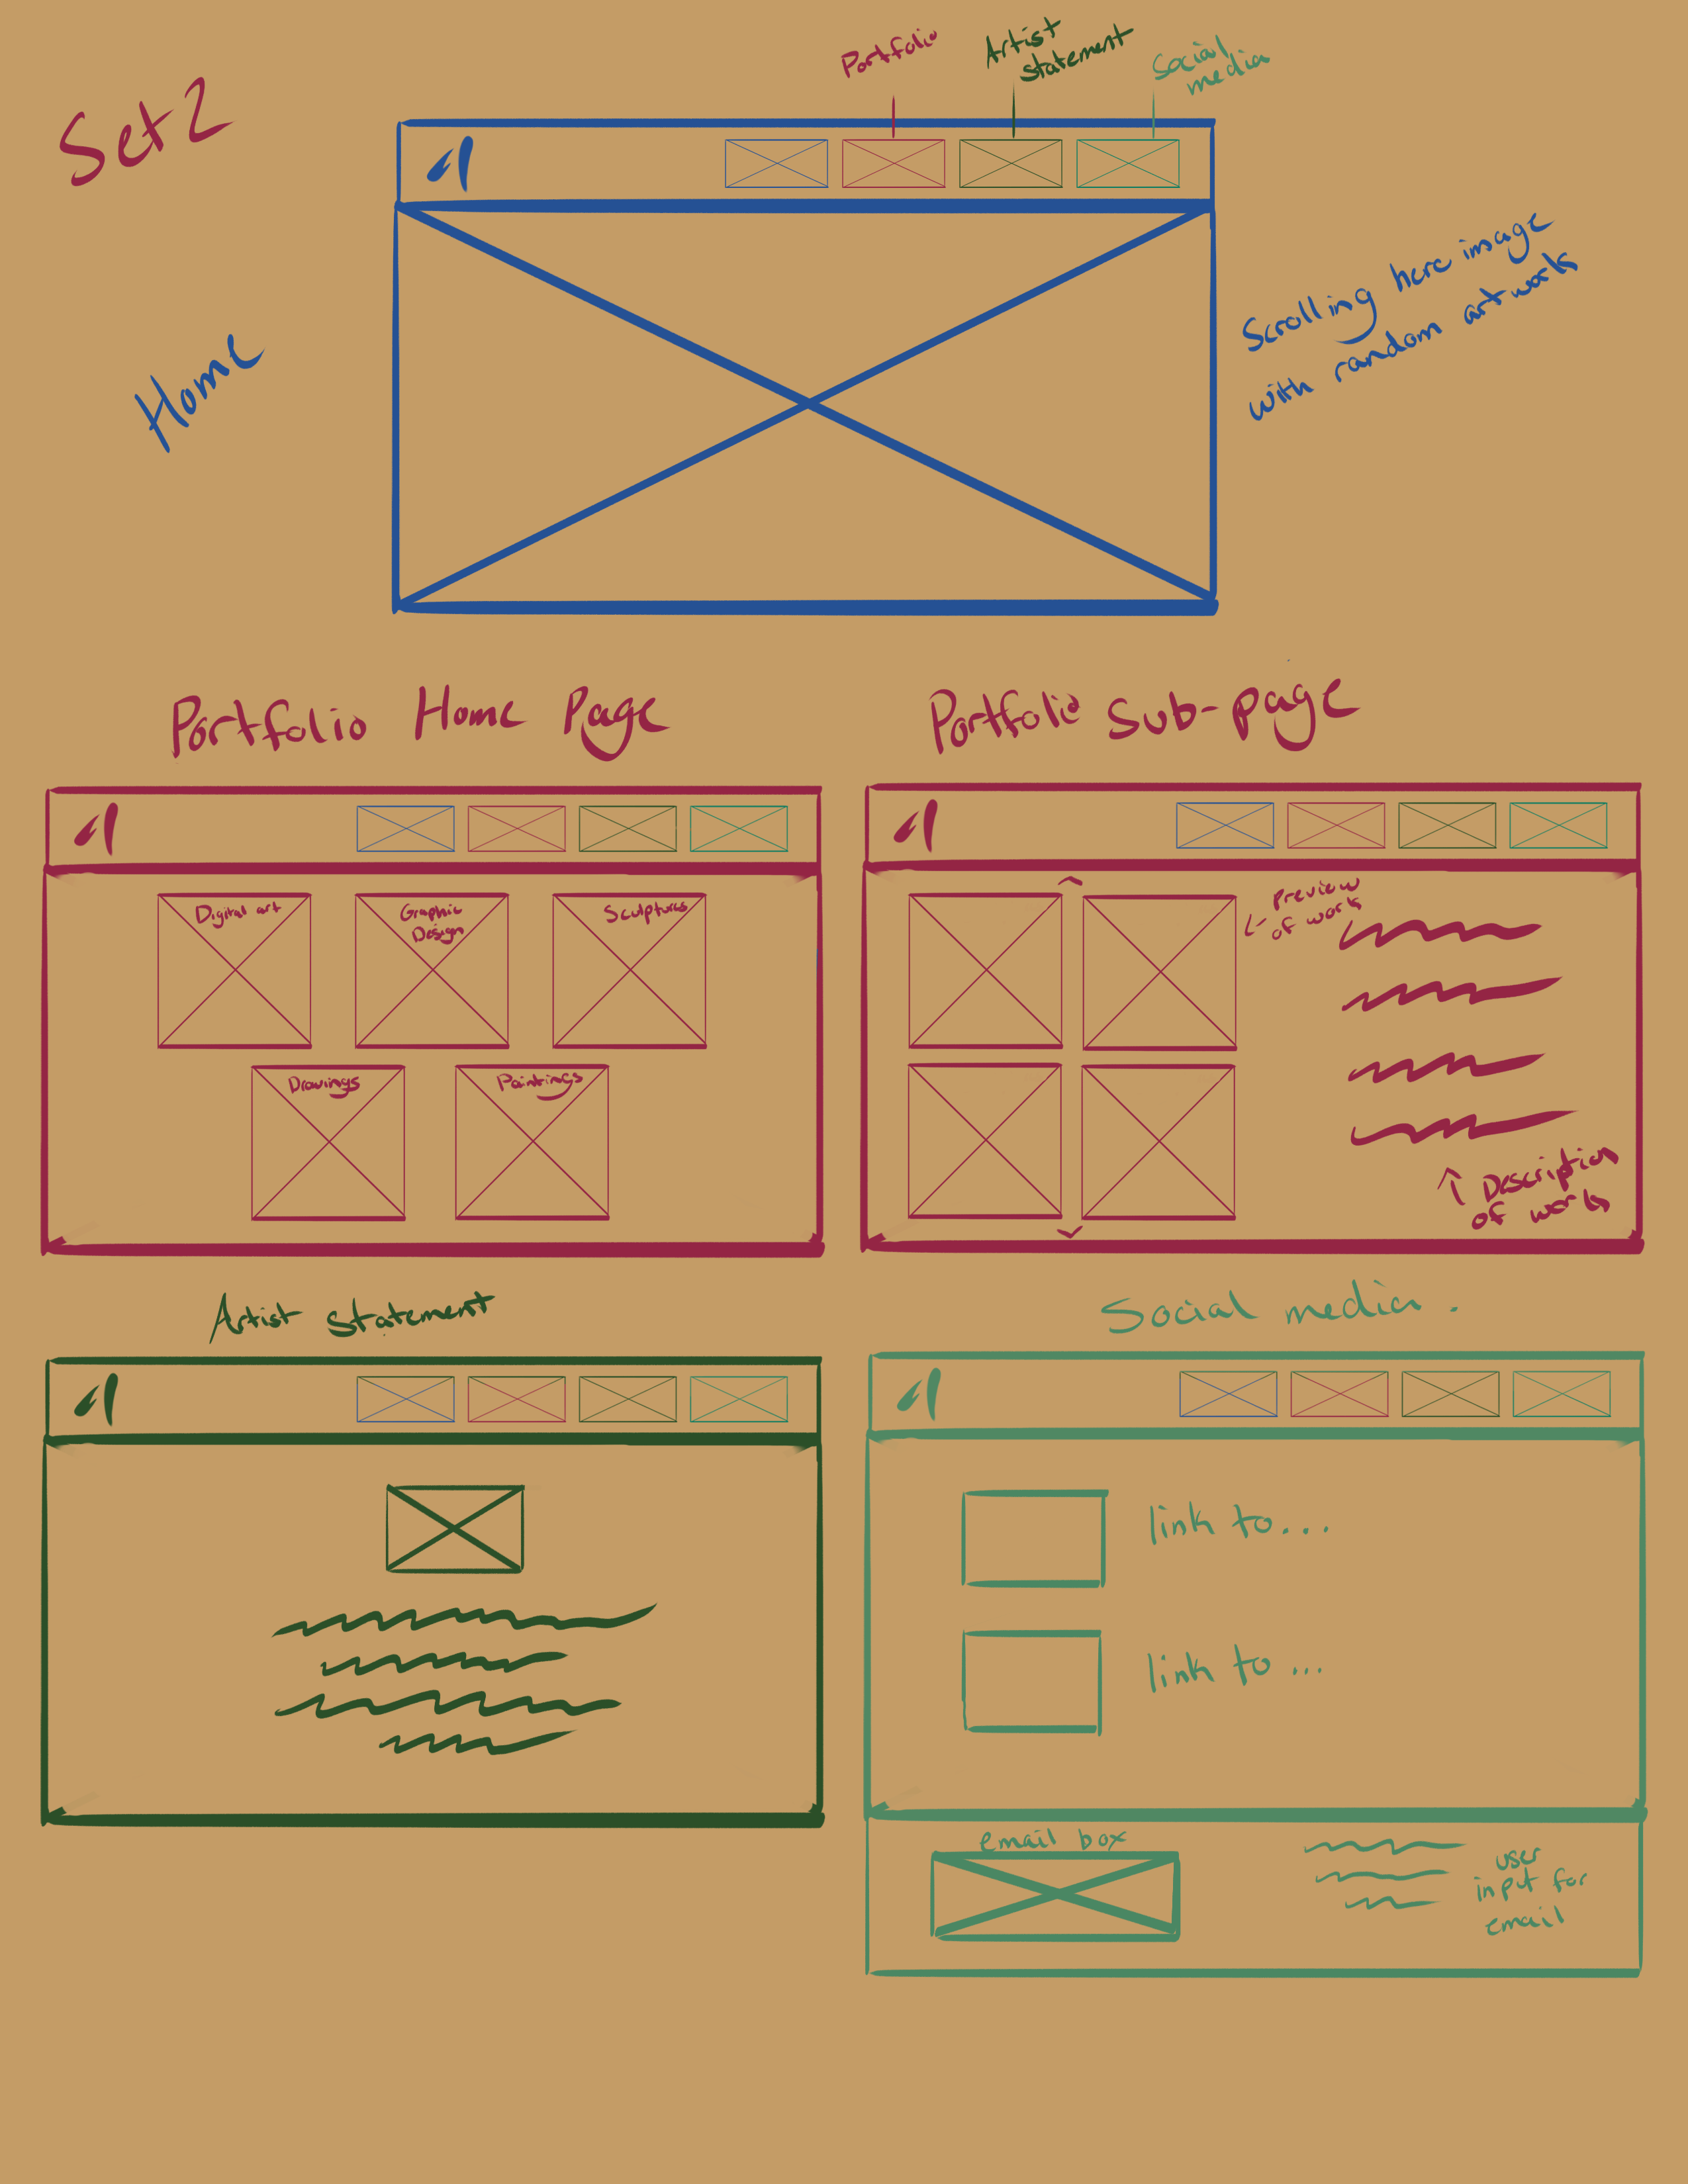 Set 2
Portfolio
Artist
statement
Social
media
Home
Scrolling hero image
with random artwork
Portfolio Home Page
Portfolio Sub-page
Digital art
Graphic
Design
Sculptures
Drawings
Paintings
Preview
of work
Description
of work
Artist statement
Social media.
link to...
link to...
email box
user
input for
email